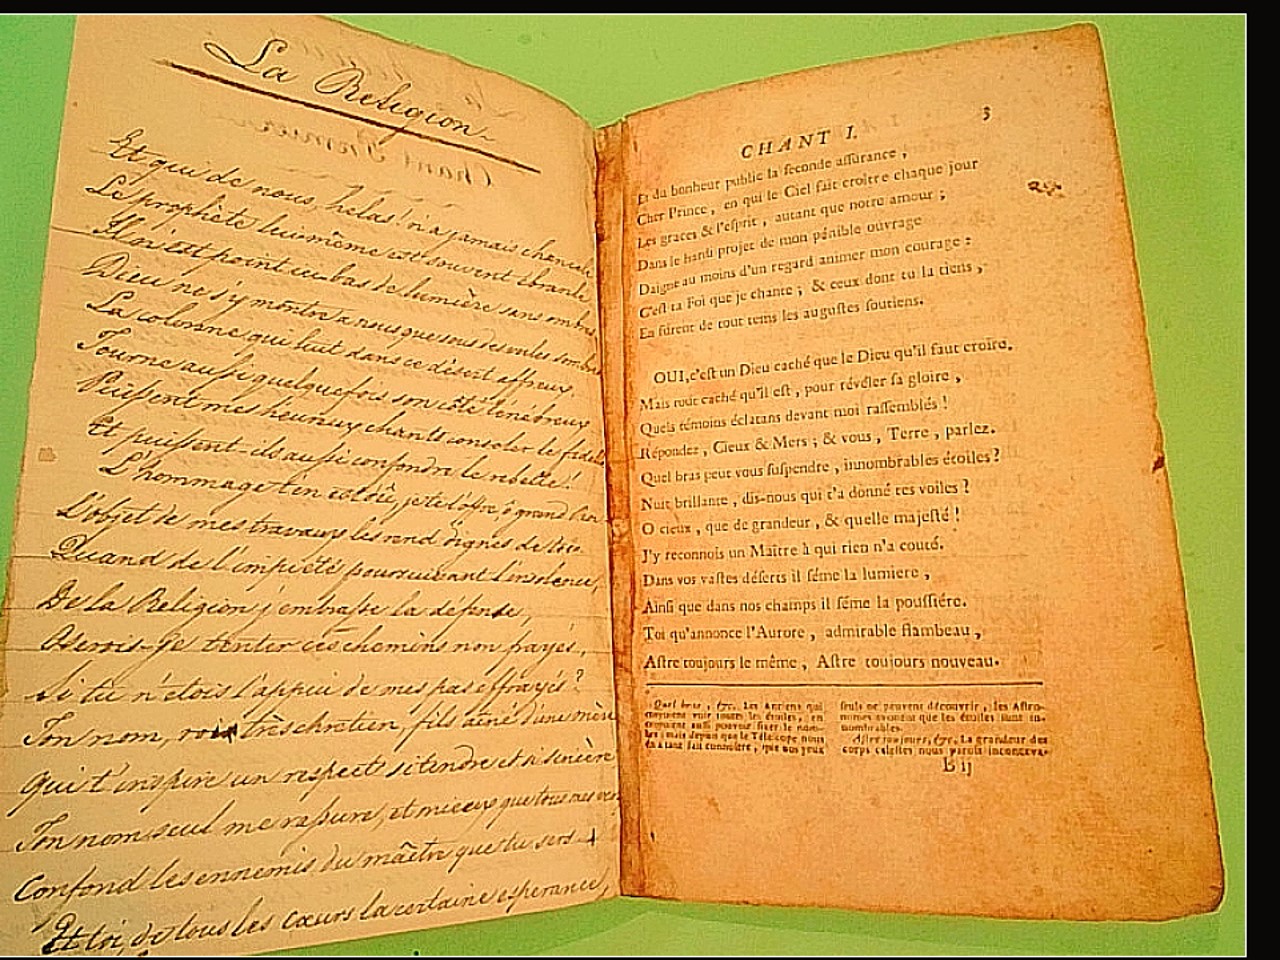 La Religion
Et qui de nous, helas! n'a jamais chancelé
Le prophète lui même est souvent ébranlé
Il n'est point ici bas de lumière sans ombre
Dieu ne s'y montre a nous que sous des voiles sombres
La colonne qui luit dans ce désert affreux
Tourne aussi quelquefois son côté ténébreux
Puissent mes heureux chants consoler le fidele
Et puissent-ils aussi confondre le rebelle!
L'hommage t'en est dû, je te l'offre, ô grand Roi
L'objet de mes travaux les rend dignes de toi
Quand de l'impiété poursuivant l'insolence,
De la Religion j'embrasse la défense,
Oserois-je tenter ces chemins non frayés,
Si tu n'étois l'appui de mes pas effrayés?
Ton nom, roi très chretien, fils aîné d'une mère
Qui t'inspire un respect si tendre et si sincère
Ton nom seul me rassure, et mieux que tous mes vers
Confond les ennemis du maître que tu sers
Et toi, de tous les cœurs la certaine esperance,
CHANT I. 3
Et du bonheur public la seconde assurance,
Cher Prince, en qui le Ciel fait croître chaque jour
Les graces & l'esprit, autant que notre amour;
Dans le hardi projet de mon pénible ouvrage
Daigne au moins d'un regard animer mon courage:
C'est ta Foi que je chante; & ceux dont tu la tiens,
En furent de tout tems les augustes soutiens.
OUI, c'est un Dieu caché que le Dieu qu'il faut croire.
Mais tout caché qu'il est, pour révéler sa gloire,
Quels témoins éclatans devant moi rassemblés!
Répondez, Cieux & Mers; & vous, Terre, parlez.
Quel bras peut vous suspendre, innombrables étoiles?
Nuit brillante, dis-nous qui t'a donné tes voiles?
O cieux, que de grandeur, & quelle majesté!
J'y reconnois un Maître à qui rien n'a couté.
Dans vos vastes déserts il séme la lumiere,
Ainsi que dans nos champs il séme la poussiére.
Toi qu'annonce l'Aurore, admirable flambeau,
Astre toujours le même, Astre toujours nouveau.
Quel bras, &c. Les Anciens qui
croyoient voir toutes les étoiles, en
croyoient aussi pouvoir fixer le nom-
bre; mais depuis que le Télescope nous
en a tant fait connoître, que nos yeux
seuls ne peuvent découvrir, les Astro-
nomes avouent que les étoiles sont in-
nombrables.
Astre toujours, &c. La grandeur des
corps célestes nous paroît inconceva-
B ij